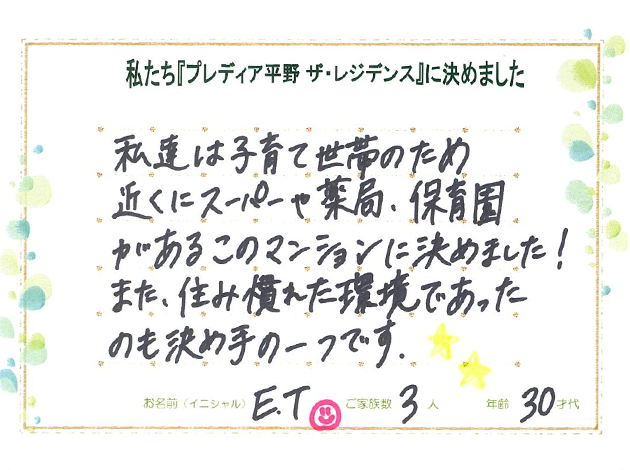 私たち『プレディア平野 ザ・レジデンス』に決めました
私達は子育て世帯のため
近くにスーパーや薬局、保育園
があるこのマンションに決めました！
また、住み慣れた環境であった
のも決め手の一つです.
お名前（イニシャル） E.T ご家族数 3 人 年齢 30 才代